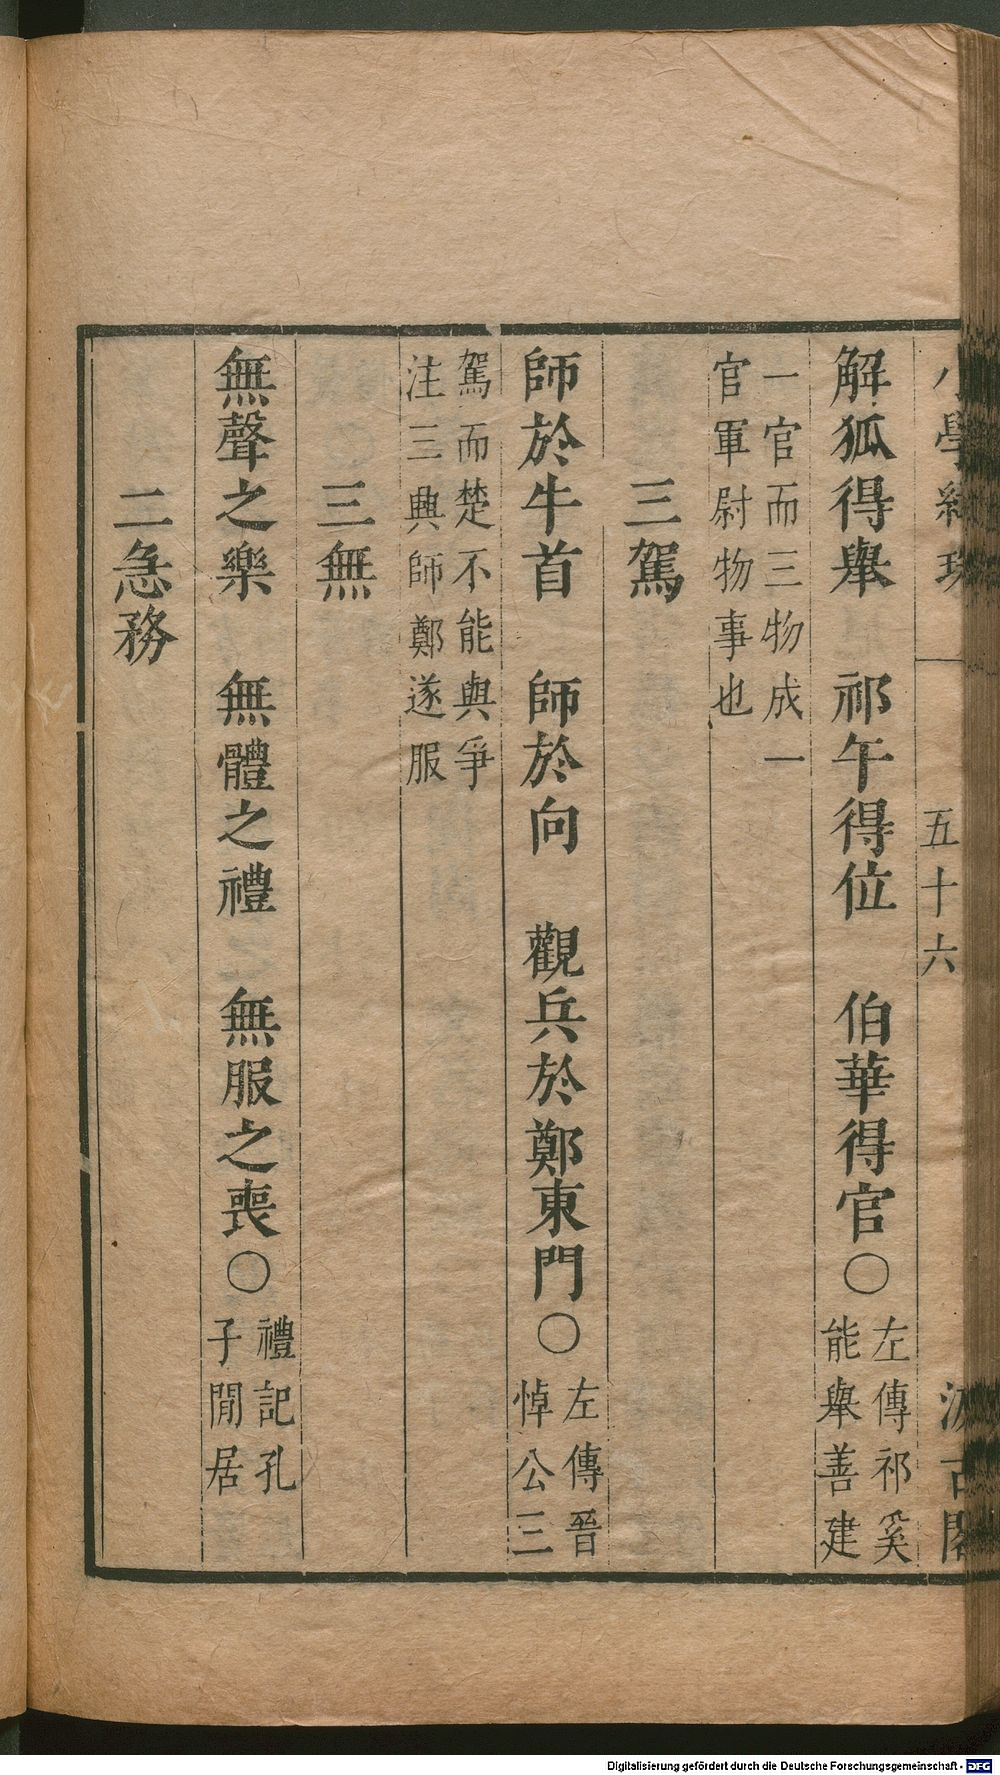 小學紺珠 五十六 汲古閣
解狐得舉 祁午得位 伯華得官〇左傳祁奚
能舉善建
一官而三物成一
官軍尉物事也
三駕
師於牛首 師於向 觀兵於鄭東門〇左傳晉
悼公三
駕而楚不能與爭
注三興師鄭遂服
三無
無聲之樂 無體之禮 無服之喪〇禮記孔
子閒居
二急務
Digitalisierung gefördert durch die Deutsche Forschungsgemeinschaft - DFG